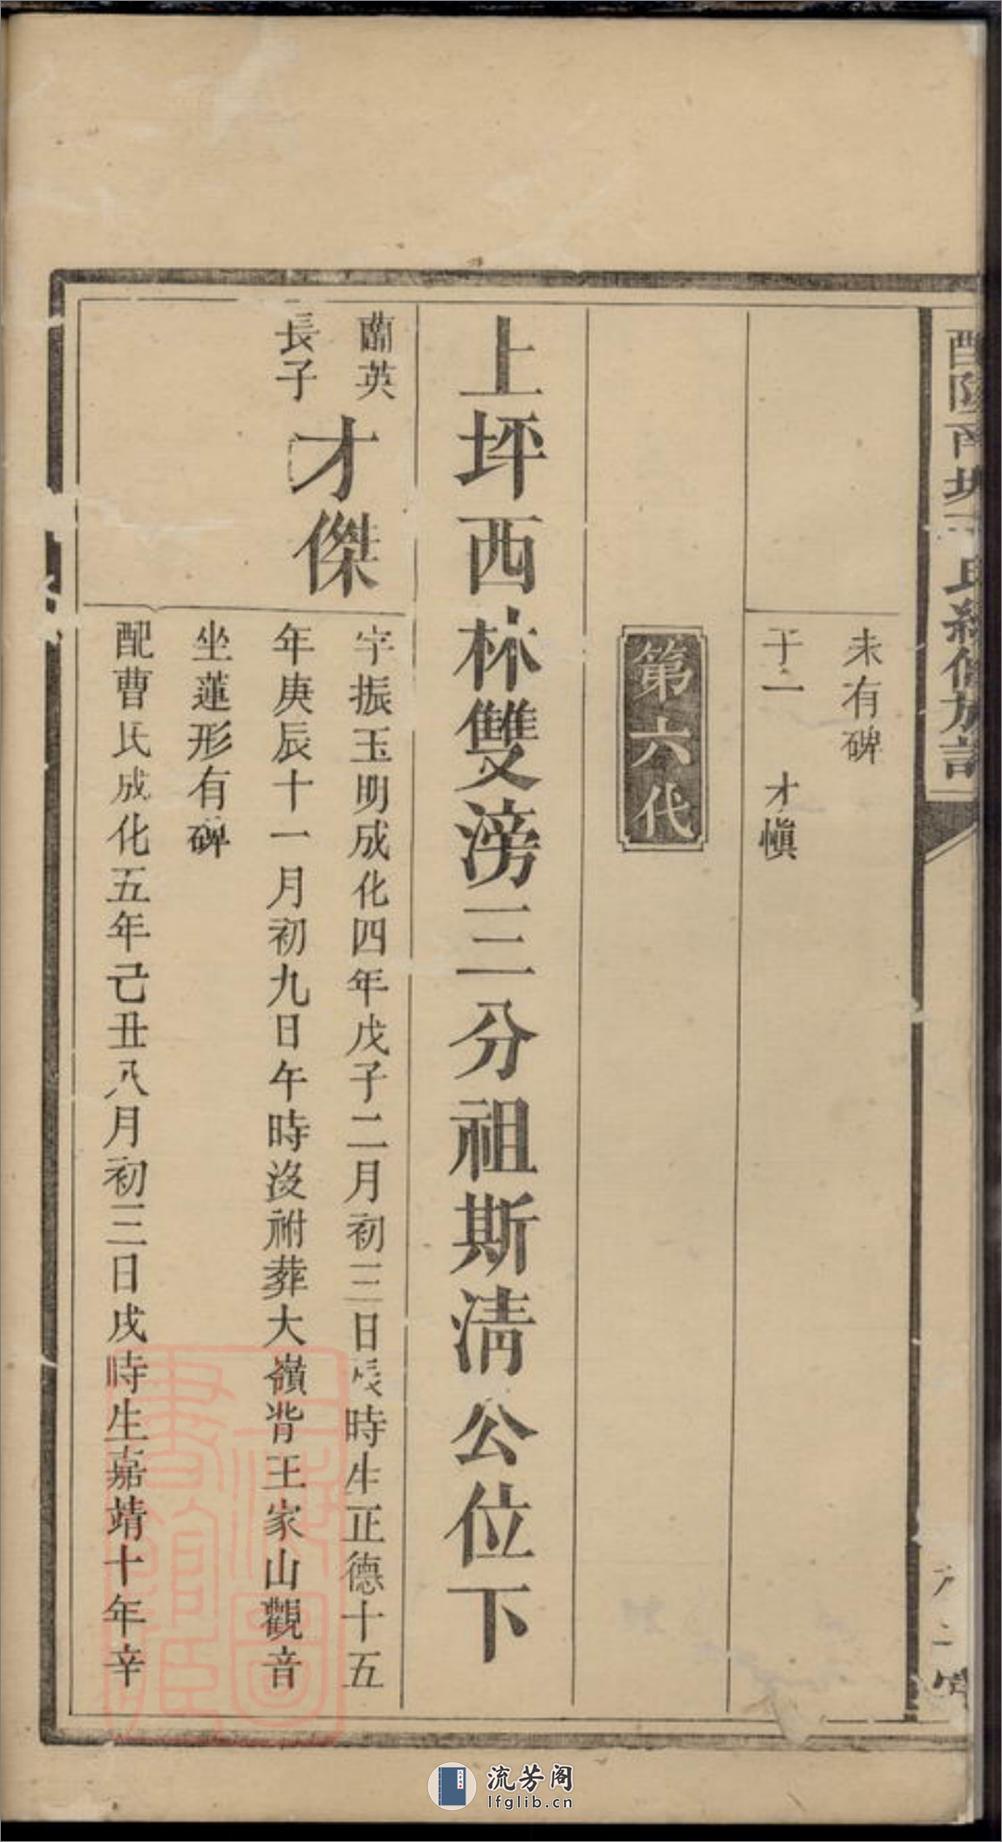 未有碑
子二 才愼
第六代
上坪西林雙滂三分祖斯淸公位下
蘭英
長子
才傑
字振玉明成化四年戊子二月初三日辰時生正德十五
年庚辰十一月初九日午時沒祔葬大嶺背王家山觀音
坐蓮形有碑
配曹氏成化五年己丑八月初三日戌時生嘉靖十年辛
流芳阁
lfglib.cn